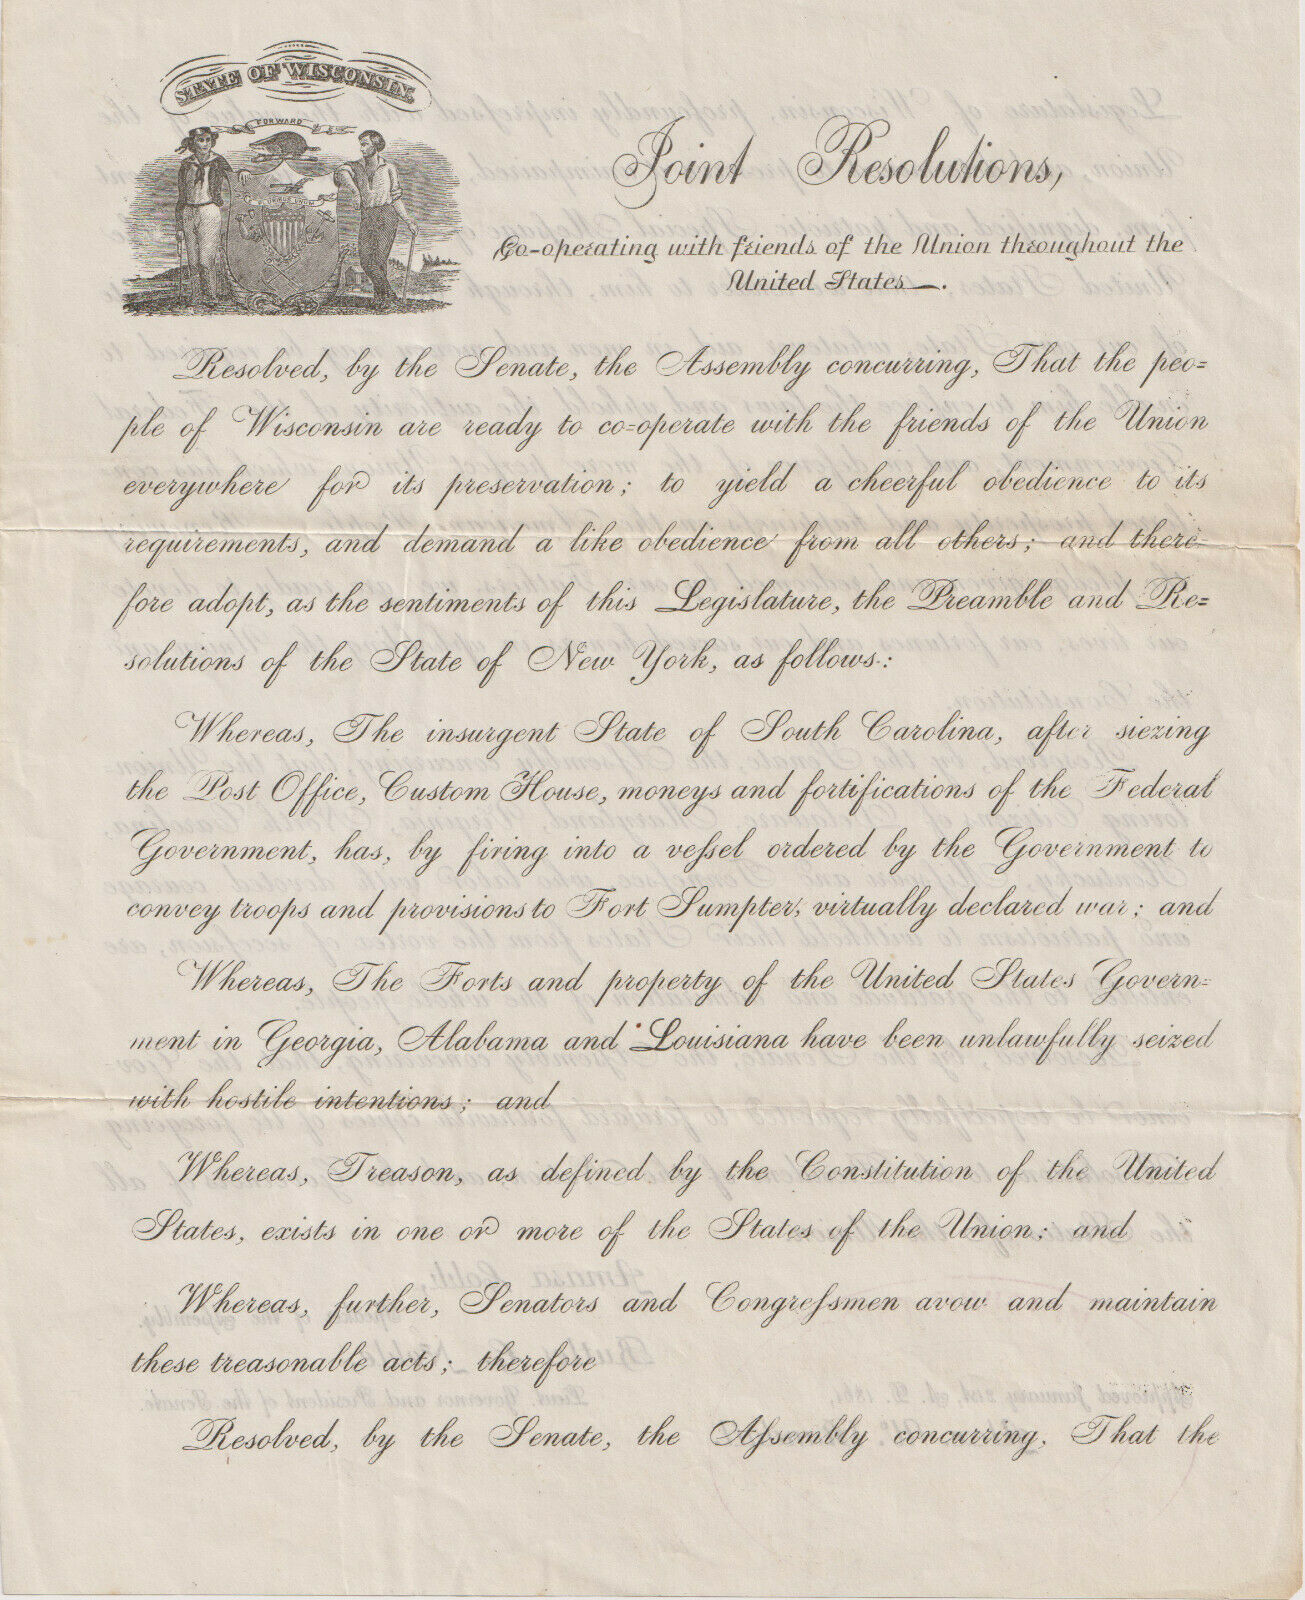 STATE OF WISCONSIN.
FORWARD
Joint Resolutions,
Co-operating with friends of the Union throughout the
United States—.
Resolved, by the Senate, the Assembly concurring, That the peo=
ple of Wisconsin are ready to co=operate with the friends of the Union
everywhere for its preservation; to yield a cheerful obedience to its
requirements, and demand a like obedience from all others; and there-
fore adopt, as the sentiments of this Legislature, the Preamble and Re=
solutions of the State of New York, as follows:
Whereas, The insurgent State of South Carolina, after siezing
the Post Office, Custom House, moneys and fortifications of the Federal
Government, has, by firing into a veſsel ordered by the Government to
convey troops and provisions to Fort Sumpter, virtually declared war; and
Whereas, The Forts and property of the United States Govern=
ment in Georgia, Alabama and Louisiana have been unlawfully seized
with hostile intentions; and
Whereas, Treason, as defined by the Constitution of the United
States, exists in one or more of the States of the Union; and
Whereas, further, Senators and Congreſsmen avow and maintain
these treasonable acts; therefore
Resolved, by the Senate, the Aſsembly concurring, That the